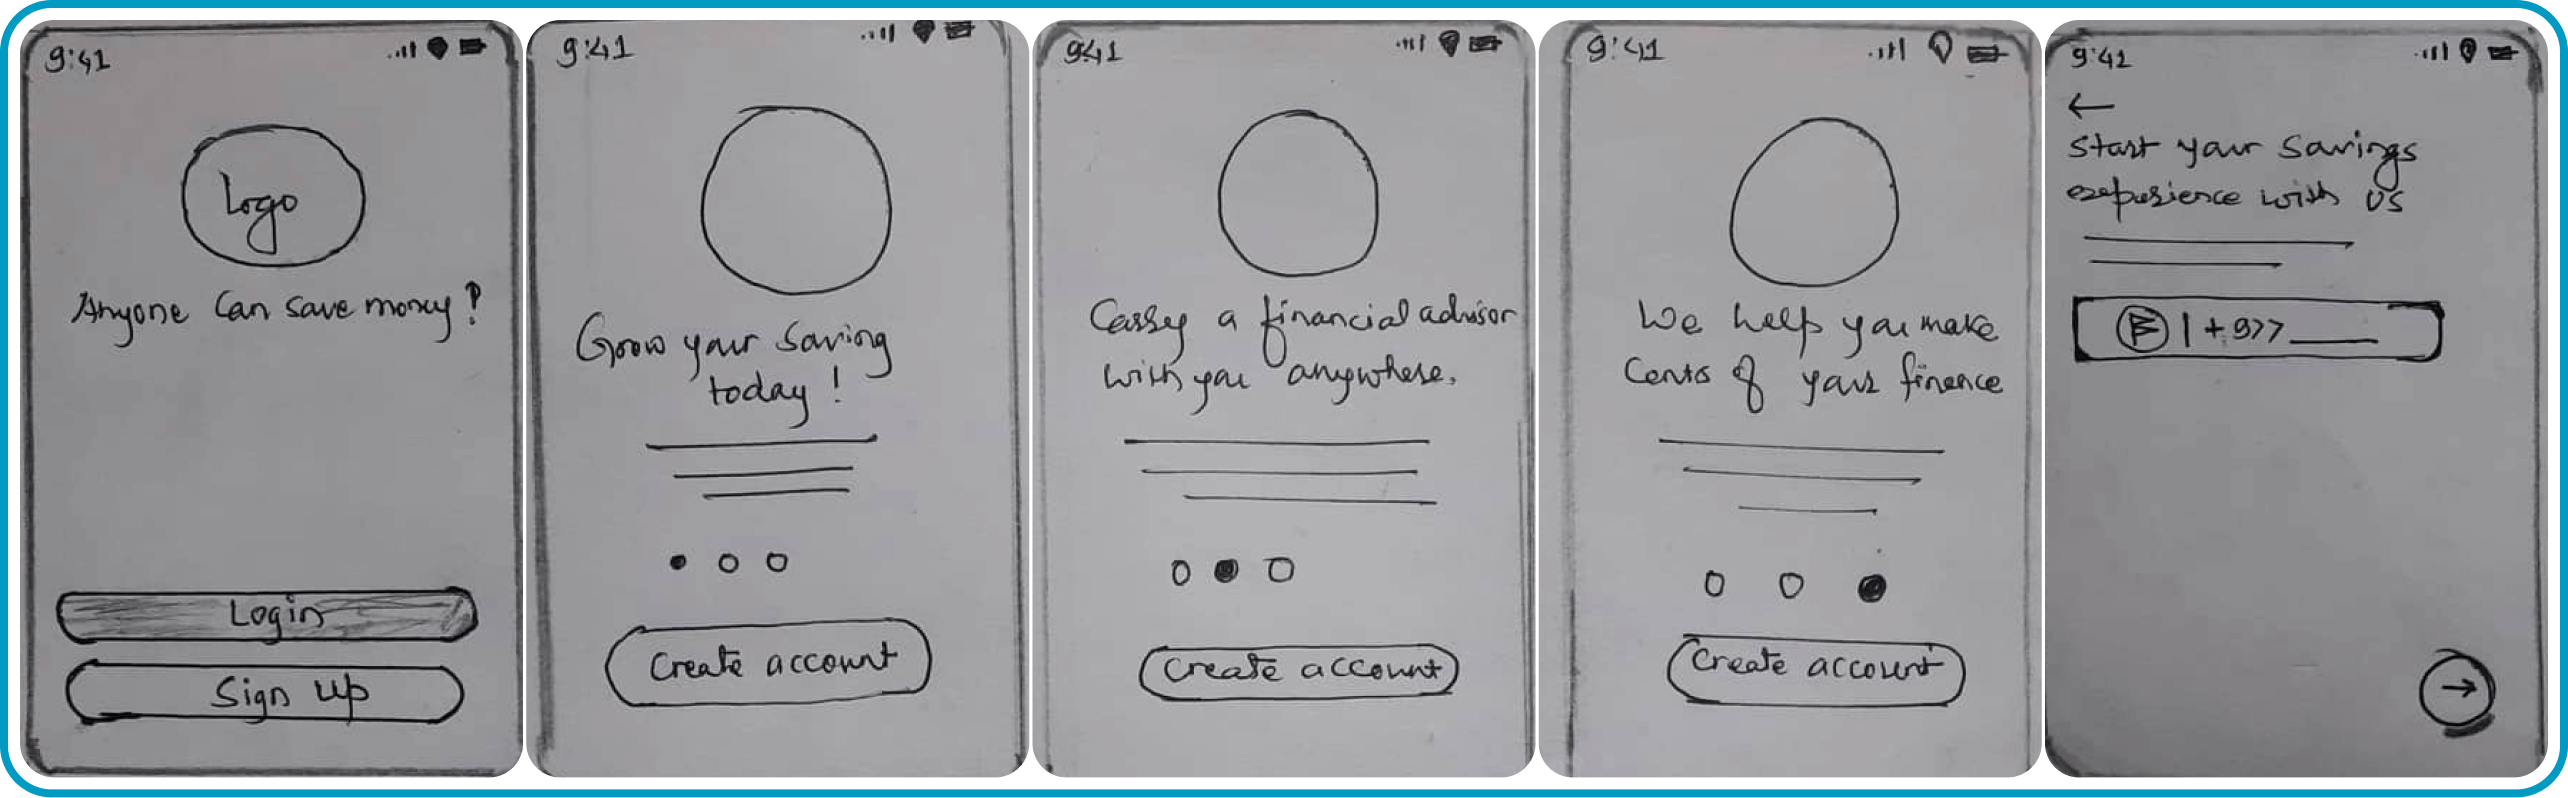 9:41
Logo
Anyone Can save money!
Login
Sign up
9:41
Grow your Saving
today!
Create account
9:41
Carry a financial advisor
with you anywhere.
Create account
9:41
We help you make
Cents of your finence
Create account
9:41
←
Start your Savings
experience with us
| +977
→